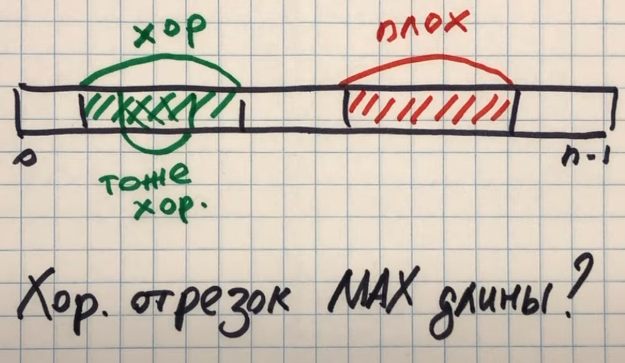 хор
плох
0
n-1
тоже
хор.
Хор. отрезок MAX длины?